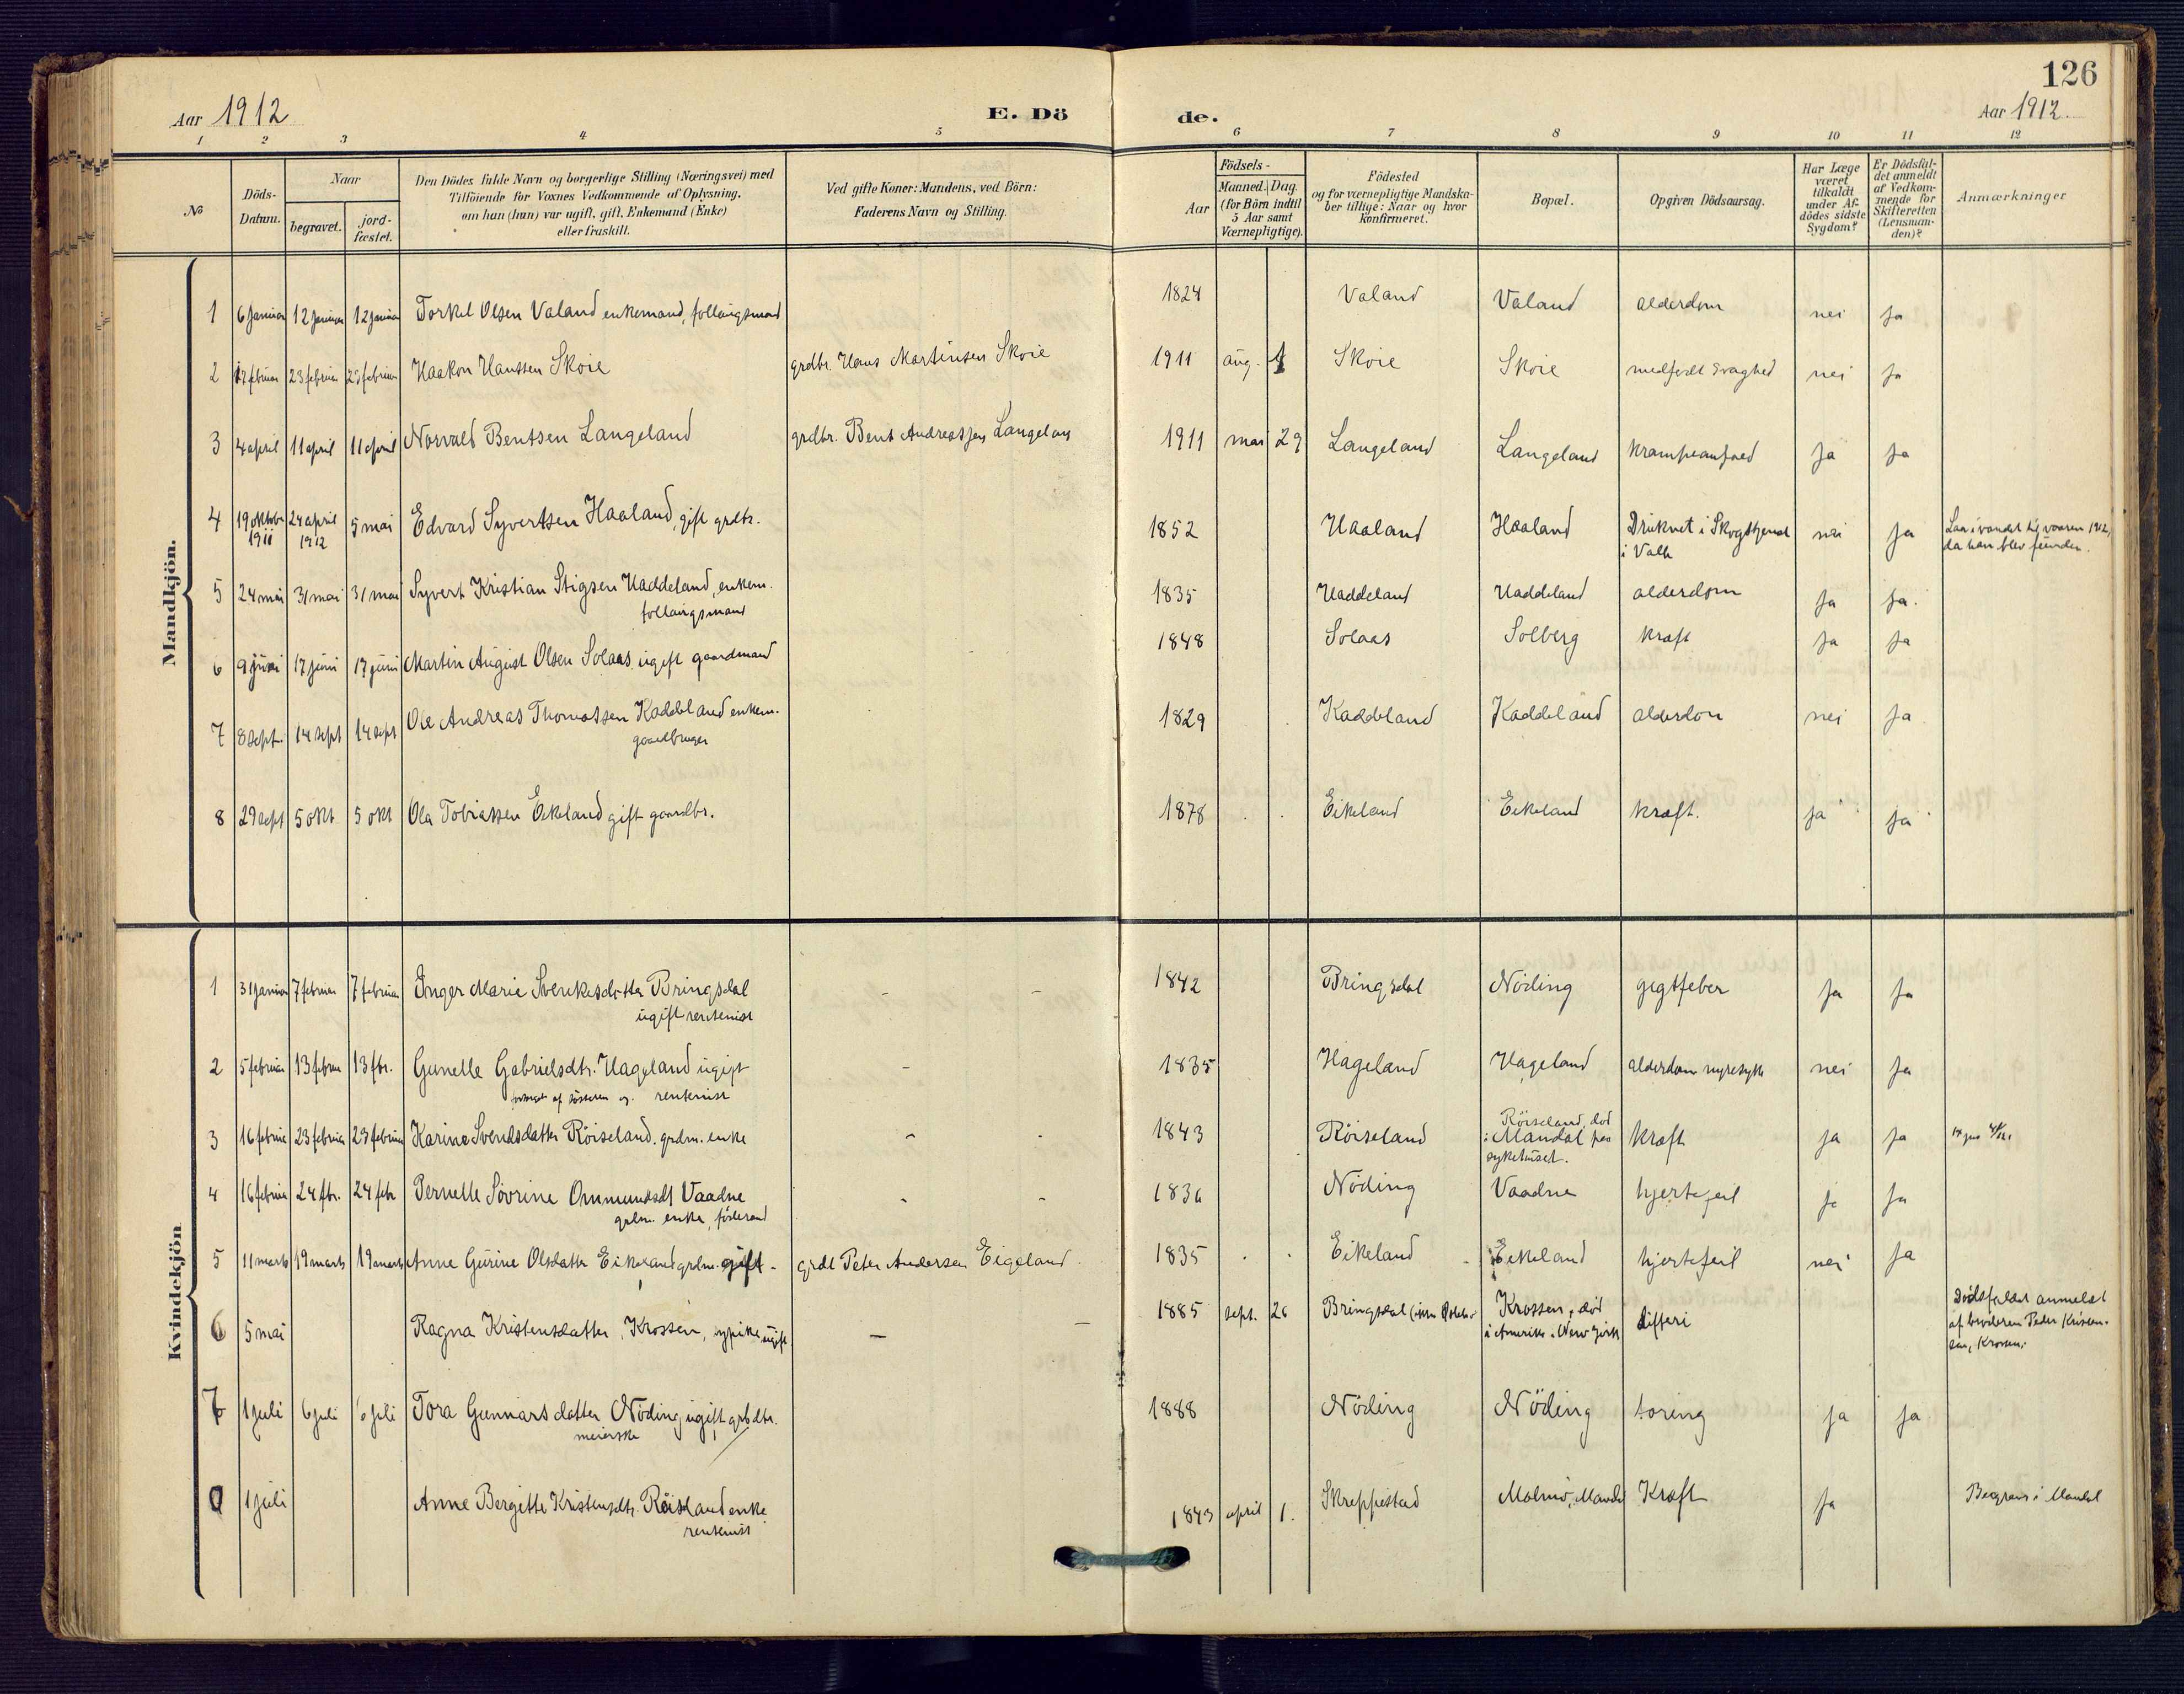 126
Aar 1912
E. Dö
de.
Aar 1912.
1 2 3 4 5 6 7 8 9 10 11 12
No
Döds-
Datum.
Naar
begravet.
jord-
fæstet.
Den Dödes fulde Navn og borgerlige Stilling (Næringsvei) med
Tilföiende for Voxnes Vedkommende af Oplysning,
om han (hun) var ugift, gift, Enkemand (Enke)
eller fraskilt.
Ved gifte Koner: Mandens, ved Börn:
Faderens Navn og Stilling.
Födsels-
Aar
Maaned. Dag.
(for Börn indtil
5 Aar samt
Værnepligtige).
Födested
og for værnepligtige Mandska-
ber tillige: Naar og hvor
konfirmeret.
Bopæl.
Opgiven Dödsaarsag.
Har Læge
været
tilkaldt
under Af-
dödes sidste
Sygdom?
Er Dödsfal-
det anmeldt
af Vedkom-
mende for
Skifteretten
(Lensman-
den)?
Anmærkninger
Mandkjön.
1 6 januar 12 januar 12 januar Torkel Olsen Valand enkemand, follaugsmand 1824 Valand Valand alderdom nei ja
2 17 februar 23 februar 23 februar Haakon Hanssen Skoie grdbr. Hans Martinsen Skoie 1911 aug. 1 Skoie Skoie medfødt svaghed nei ja
3 4 april 11 april 11 april Norvald Bentsen Langeland grdbr. Bent Andreassen Langeland 1911 mai 29 Langeland Langeland krampeanfæd ja ja
4 19 oktober 24 april 5 mai Edvard Syvertsen Haaland, gift grdbr. 1852 Haaland Haaland Druknet i Skogstjend nei ja Laa i vandet til vaaren 1912,
1911 1912 i Valle da han blev funden.
5 24 mai 31 mai 31 mai Syvert Kristian Stigsen Haddeland, enkem. 1835 Haddeland Haddeland alderdom ja ja.
follaugsmand
6 9 juni 17 juni 17 juni Martin August Olsen Solaas ugift gaardmand 1848 Solaas Solberg kræft ja ja
7 8 sept. 14 sept 14 sept Ole Andreas Thomassen Kaddeland enkem. 1829 Kaddeland Kaddeland alderdom nei ja
gaardbruger
8 29 sept 5 okt 5 okt Ola Tobiassen Eikeland gift gaardbr. 1878 Eikeland Eikeland kræft. ja ja
Kvindekjön
1 31 januar 7 februar 7 februar Inger Marie Svenkesdatter Bringsdal - - 1842 Bringsdal Nöding gigtfeber ja ja
ugift rentenist
2 5 februar 13 februar 13 fbr. Gunelle Gabrielsdtr. Hageland ugift - 1835 Hageland Hageland alderdom nyresyke nei ja
af sösteren og rentenist
3 16 februar 23 februar 23 februar Karine Svendsdatter Röiseland. grdm. enke - - 1843 Röiseland Röiseland, död
i Mandal paa
sykehuset. kræft ja ja
4 16 februar 24 fbr. 24 febr Pernelle Sövrine Ommundsdt Vaadne - - 1836 Nöding Vaadne hjertefeil ja ja
grdm. enke, föderaad
5 11 marts 19 marts 19 marts Anne Gurine Olsdatter Eikeland grdm. gift - grdb Peter Andersen Eigeland. 1835 Eikeland Eikeland hjertefeil nei ja
6 5 mai Ragna Kristensdatter, Krossen, sypike ugift - - 1885 sept. 26 Bringsdal Krossen, död
i Amerika. New York difteri Dödsfaldet anmeldt
af broderen Peder Kristen-
sen, Krossen.
7 1 juli 6 juli 6 juli Tora Gunnarsdatter Nöding ugift grbdtr. 1888 Nöding Nöding toring ja ja
meierske
8 1 juli Anne Bergitte Kristensdtr. Röiseland enke 1843 april 1. Skreppestad Malmö, Mandal Kræft ja Begraven i Mandal
rentenist